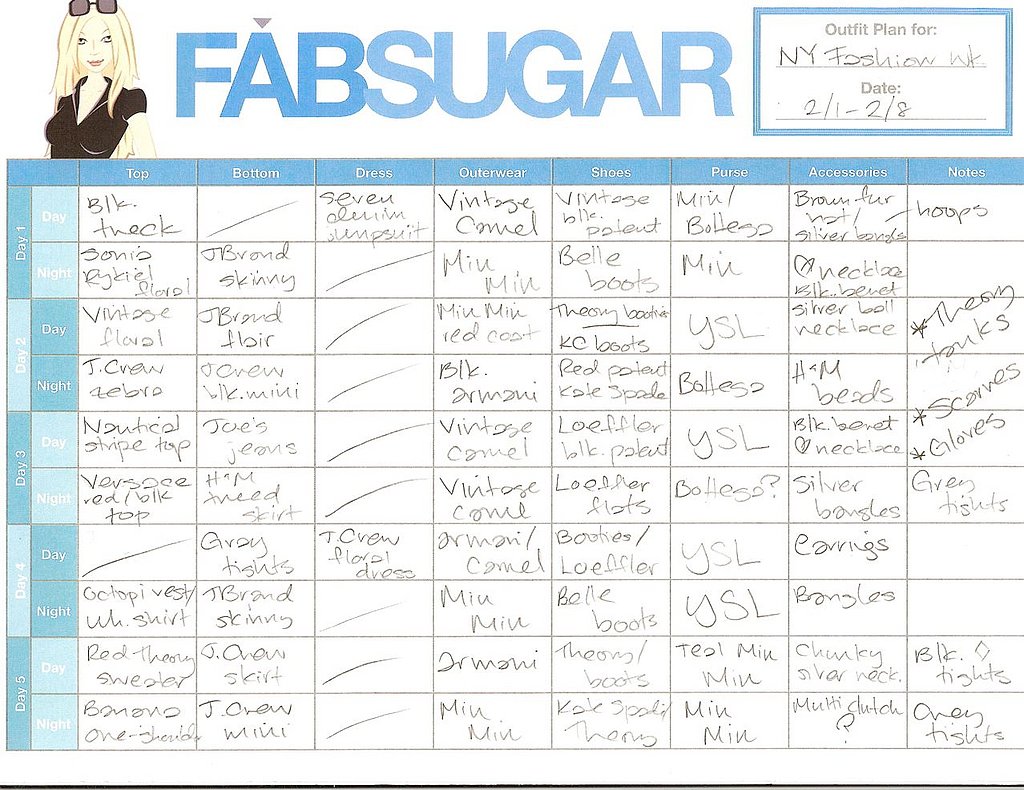 FABSUGAR
Outfit Plan for:
NY Fashion Wk
Date:
2/1-2/8
Top Bottom Dress Outerwear Shoes Purse Accessories Notes
Day 1
Day
Blk.
tneck
Seven
denim
jumpsuit
Vintage
Camel
Vintage
blk.
patent
Miu/
Bottega
Brown fur
hat/
silver bangls
hoops
Night
Sonia
Rykiel
floral
JBrand
skinny
Miu
Miu
Belle
boots
Miu
♡ necklace
Blk. beret
Day 2
Day
Vintage
floral
JBrand
flair
Miu Miu
red coat
Theory booties
KC boots
YSL
silver ball
necklace
*Theory
tanks
Night
J.Crew
zebra
JCrew
blk.mini
Blk.
armani
Red patent
Kate Spade
Bottega
H+M
beads
*Scarves
Day 3
Day
Nautical
stripe top
Joe's
jeans
Vintage
camel
Loeffler
blk. patent
YSL
Blk. beret
♡ necklace
*Gloves
Night
Versace
red/blk
top
H+M
tweed
skirt
Vintage
camel
Loeffler
flats
Bottega?
Silver
bangles
Grey
tights
Day 4
Day
Gray
tights
J.Crew
floral
dress
armani/
Camel
Booties/
Loeffler
YSL
earrigs
Night
octopi vest/
wh. shirt
JBrand
skinny
Miu
Miu
Belle
boots
YSL
Bangles
Day 5
Day
Red Theory
sweater
J.Crew
skirt
armani
Theory/
boots
Teal Miu
Miu
Chunky
silver neck.
Blk. ◇
tights
Night
Banana
one-should
J.Crew
mini
Miu
Miu
Kate Spade/
Theory
Miu
Miu
Multi clutch
?
Grey
tights